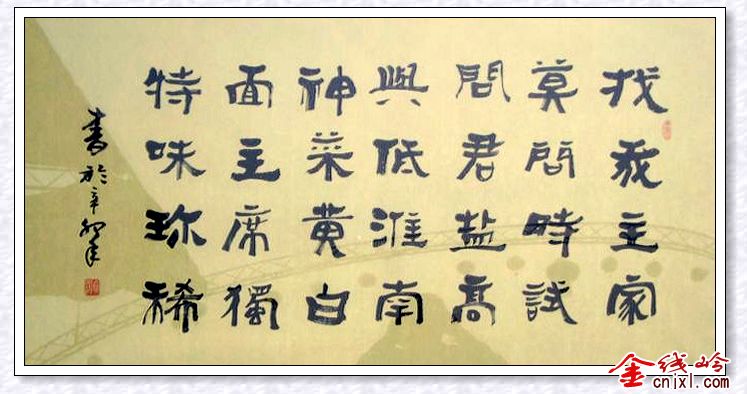 找我主家
莫問時試
問君盐高
與低淮南
神菜黄白
面主席獨
特味珎稀
書於辛卯年
金线岭
cnjxl.com